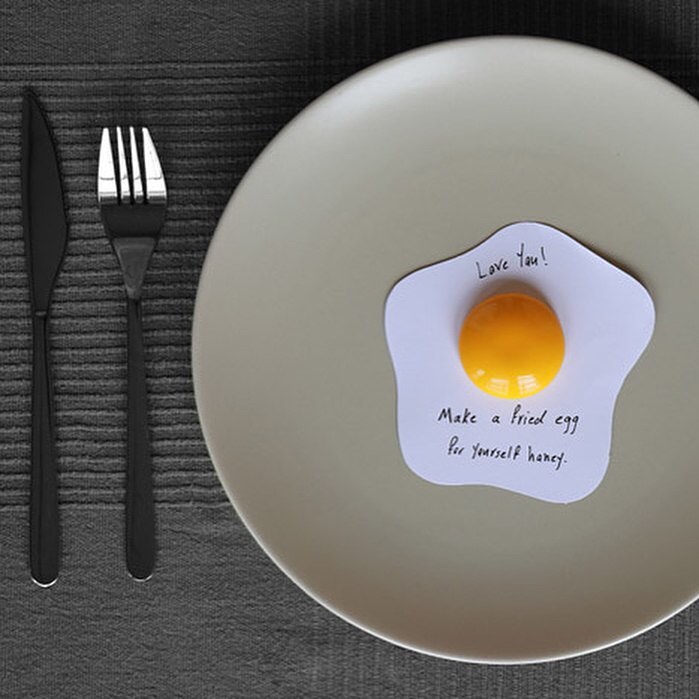 Love You!
Make a fried egg
for yourself honey.